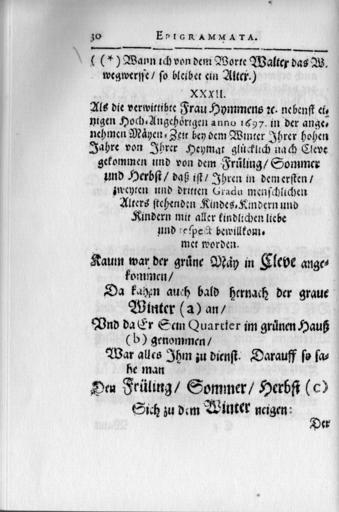 30 EPIGRAMMATA.
((*) Wann ich von dem Worte Walter das W.
wegwerffe/ so bleibet ein Alter.)
XXXII.
Als die verwittibte Frau Hymmens ꝛc. nebenst ei-
nigen Hoch-Angehörigen anno 1697. in der ange-
nehmen Mäyen-Zeit bey dem Winter Jhrer hohen
Jahre von Jhrer Heymat glücklich nach Cleve
gekommen und von dem Früling/ Sommer
und Herbst/ daß ist/ Jhren in dem ersten/
zweyten und dritten Gradu menschlichen
Alters stehenden Kindes-Kindern und
Kindern mit aller kindlichen liebe
und respect bewillkom-
met worden.
Kaum war der grüne Mäy in Cleve ange-
kommen/
Da kahm auch bald hernach der graue
Winter (a) an/
Vnd da Er Sein Quartier im grünen Hauß
(b) genommen/
War alles Jhm zu dienst. Darauff so sa-
he man
Den Früling/ Sommer/ Herbst (c)
Sich zu dem Winter neigen:
Der